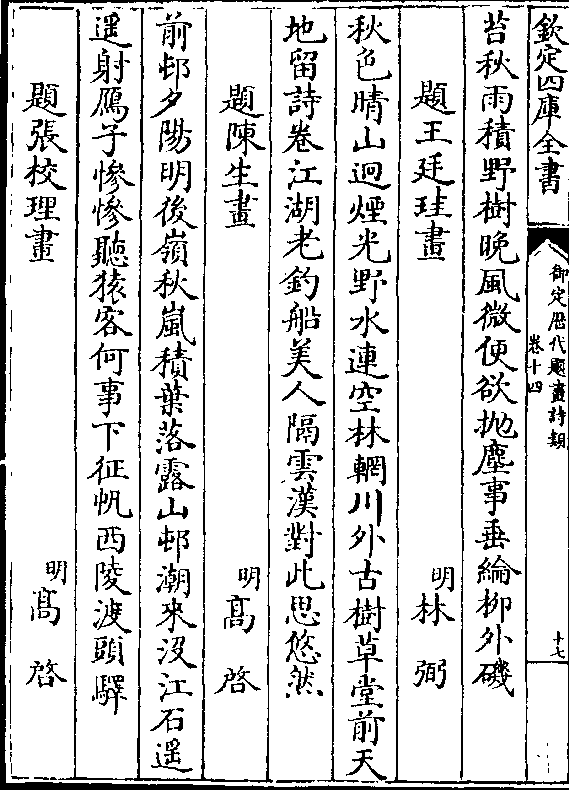 欽定四庫全書
御定歴代題畫詩類
卷十四
十七
苔秋雨積野樹晚風微便欲抛塵事垂綸栁外磯
題王廷珪畫
明林弼
秋色晴山迥煙光野水連空林輞川外古樹草堂前天
地留詩卷江湖老釣船美人隔雲漢對此思悠然
題陳生畫
明髙啓
前邨夕陽明後嶺秋嵐積葉落露山邨潮來沒江石遥
遥射鴈子慘慘聽猿客何事下征帆西陵渡頭驛
題張校理畫
明髙啓